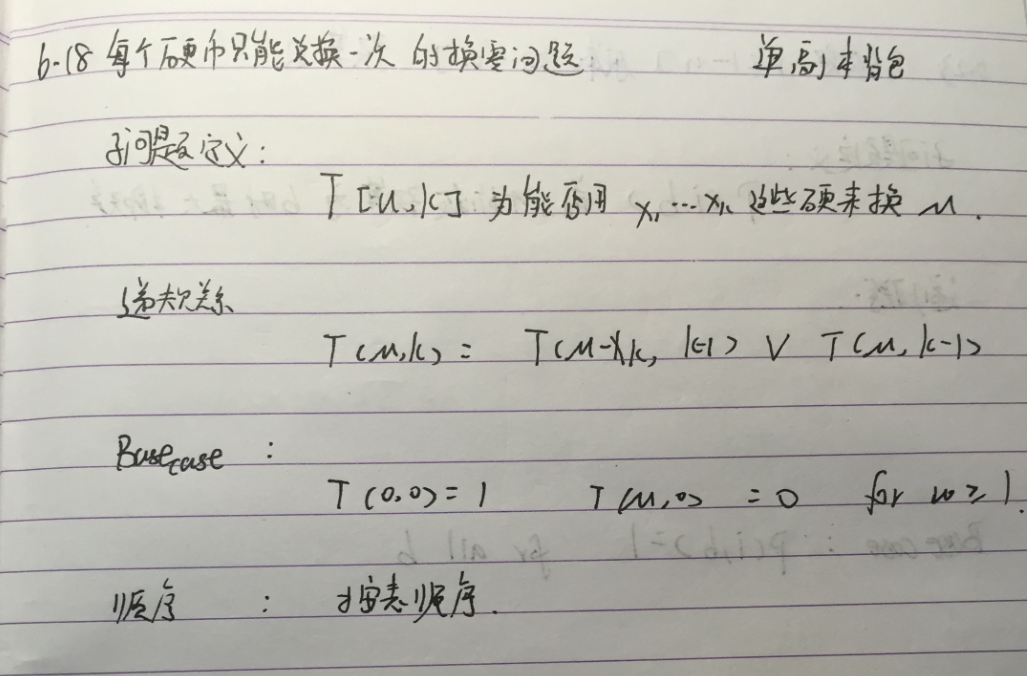 6-18 每个硬币只能兑换一次 的换零问题 单副本背包
子问题定义：
T[u,k] 为能否用 x₁…xₖ 这些硬来换 u.
递归关系
T(u,k) = T(u-xk, k-1) ∨ T(u, k-1)
Basecase :
T(0,0)=1 T(u,0) =0 for u≥1.
顺序 : 按表顺序.